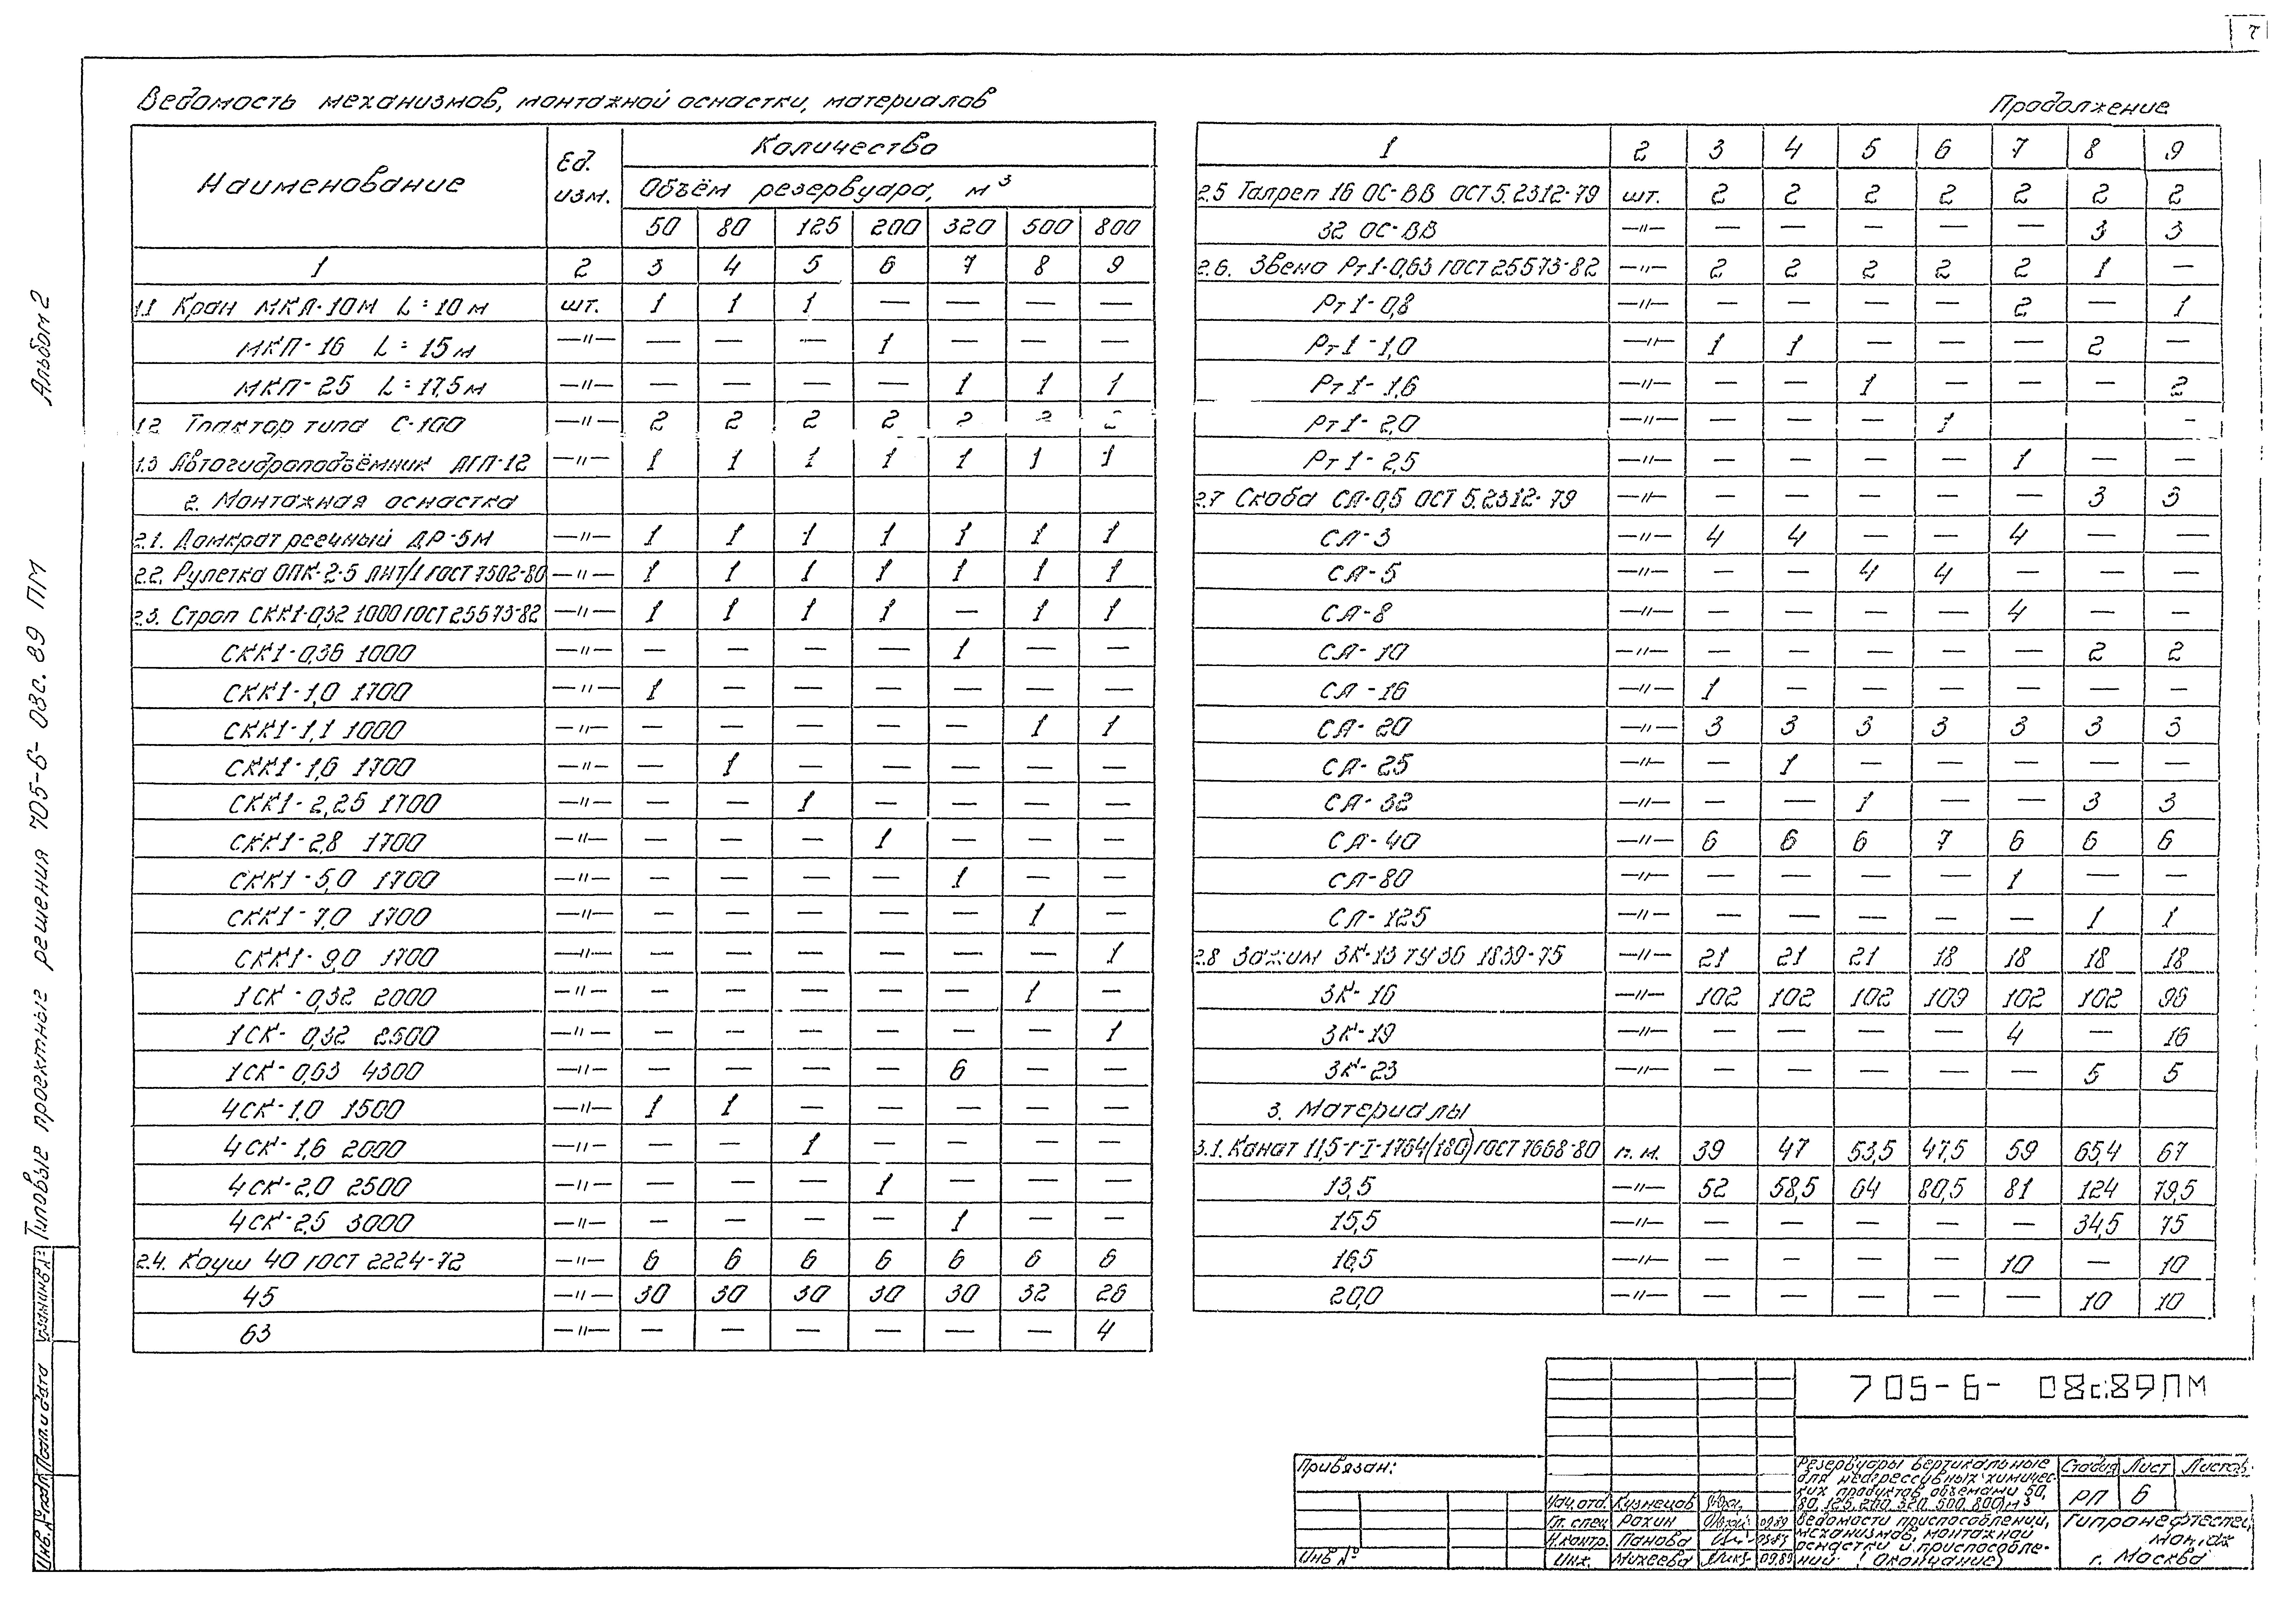 7
Ведомость механизмов, монтажной оснастки, материалов
Наименование | Ед. изм. | Количество
Объём резервуара, м³
50 | 80 | 125 | 200 | 320 | 500 | 800
1 | 2 | 3 | 4 | 5 | 6 | 7 | 8 | 9
1.1 Кран МКП-10М L=10м | шт. | 1 | 1 | 1 | — | — | — | —
МКП-16 L=15м | —"— | — | — | — | 1 | — | — | —
МКП-25 L=17,5м | —"— | — | — | — | — | 1 | 1 | 1
1.2 Трактор типа С-100 | —"— | 2 | 2 | 2 | 2 | 2 | 2 | 2
1.3 Автогидроподъёмник АГП-12 | —"— | 1 | 1 | 1 | 1 | 1 | 1 | 1
2. Монтажная оснастка
2.1. Домкрат реечный ДР-5М | —"— | 1 | 1 | 1 | 1 | 1 | 1 | 1
2.2. Рулетка ОПК-2-5 АНТ/1 ГОСТ 7502-80 | —"— | 1 | 1 | 1 | 1 | 1 | 1 | 1
2.3. Строп СКК1-0,32 1000 ГОСТ 25573-82 | —"— | 1 | 1 | 1 | 1 | — | 1 | 1
СКК1-0,36 1000 | —"— | — | — | — | — | 1 | — | —
СКК1-1,0 1700 | —"— | 1 | — | — | — | — | — | —
СКК1-1,1 1000 | —"— | — | — | — | — | — | 1 | 1
СКК1-1,6 1700 | —"— | — | 1 | — | — | — | — | —
СКК1-2,25 1700 | —"— | — | — | 1 | — | — | — | —
СКК1-2,8 1700 | —"— | — | — | — | 1 | — | — | —
СКК1-5,0 1700 | —"— | — | — | — | — | 1 | — | —
СКК1-7,0 1700 | —"— | — | — | — | — | — | 1 | —
СКК1-9,0 1700 | —"— | — | — | — | — | — | — | 1
1СК-0,32 2000 | —"— | — | — | — | — | — | 1 | —
1СК-0,32 2500 | —"— | — | — | — | — | — | — | 1
1СК-0,63 4300 | —"— | — | — | — | — | 6 | — | —
4СК-1,0 1500 | —"— | 1 | 1 | — | — | — | — | —
4СК-1,6 2000 | —"— | — | — | 1 | — | — | — | —
4СК-2,0 2500 | —"— | — | — | — | 1 | — | — | —
4СК-2,5 3000 | —"— | — | — | — | — | 1 | — | —
2.4. Коуш 40 ГОСТ 2224-72 | —"— | 6 | 6 | 6 | 6 | 6 | 6 | 6
45 | —"— | 30 | 30 | 30 | 30 | 30 | 32 | 26
63 | —"— | — | — | — | — | — | — | 4
Продолжение
1 | 2 | 3 | 4 | 5 | 6 | 7 | 8 | 9
2.5 Талреп 16 ОС-ВВ ОСТ 5.2312-79 | шт. | 2 | 2 | 2 | 2 | 2 | 2 | 2
32 ОС-ВВ | —"— | — | — | — | — | — | 3 | 3
2.6. Звено Рт1-0,63 ГОСТ 25573-82 | —"— | 2 | 2 | 2 | 2 | 2 | 1 | —
Рт1-0,8 | —"— | — | — | — | — | 2 | — | 1
Рт1-1,0 | —"— | 1 | 1 | — | — | — | 2 | —
Рт1-1,6 | —"— | — | — | 1 | — | — | — | 2
Рт1-2,0 | —"— | — | — | — | 1 | | | -
Рт1-2,5 | —"— | — | — | — | — | 1 | — | —
2.7 Скоба СА-0,5 ОСТ 5.2312-79 | —"— | — | — | — | — | — | 3 | 3
СА-3 | —"— | 4 | 4 | — | — | 4 | — | —
СА-5 | —"— | — | — | 4 | 4 | — | — | —
СА-8 | —"— | — | — | — | — | 4 | — | —
СА-10 | —"— | — | — | — | — | — | 2 | 2
СА-16 | —"— | 1 | — | — | — | — | — | —
СА-20 | —"— | 3 | 3 | 3 | 3 | 3 | 3 | 3
СА-25 | —"— | — | 1 | — | — | — | — | —
СА-32 | —"— | — | — | 1 | — | — | 3 | 3
СА-40 | —"— | 6 | 6 | 6 | 7 | 6 | 6 | 6
СА-80 | —"— | — | — | — | — | 1 | — | —
СА-125 | —"— | — | — | — | — | — | 1 | 1
2.8 Зажим ЗК-13 ТУ 36 1839-75 | —"— | 21 | 21 | 21 | 18 | 18 | 18 | 18
ЗК-16 | —"— | 102 | 102 | 102 | 109 | 102 | 102 | 96
ЗК-19 | —"— | — | — | — | — | 4 | — | 16
ЗК-23 | —"— | — | — | — | — | — | 5 | 5
3. Материалы
3.1. Канат 11,5-Г-I-1764(180) ГОСТ 7668-80 | п.м. | 39 | 47 | 53,5 | 47,5 | 59 | 65,4 | 67
13,5 | —"— | 52 | 58,5 | 64 | 80,5 | 81 | 124 | 79,5
15,5 | —"— | — | — | — | — | — | 34,5 | 75
16,5 | —"— | — | — | — | — | 10 | — | 10
20,0 | —"— | — | — | — | — | — | 10 | 10
Альбом 2
Типовые проектные решения 705-6-03с.89 ПМ
Взам.инв.№
Подп. и дата
Инв.№ подл.
Привязан:
Инв №
705-6- 08с.89ПМ
Нач.отд. Кузнецов
Гл. спец. Рохин 09.89
Н.контр. Панова
Инж. Михеева 09.89
Резервуары вертикальные
для неагрессивных химичес-
ких продуктов объемами 50,
80, 125, 200, 320, 500, 800 м³
Ведомости приспособлений,
механизмов, монтажной
оснастки и приспособле-
ний (Окончание)
Стадия | Лист | Листов
РП | 6
Гипронефтеспец
монтаж
г. Москва